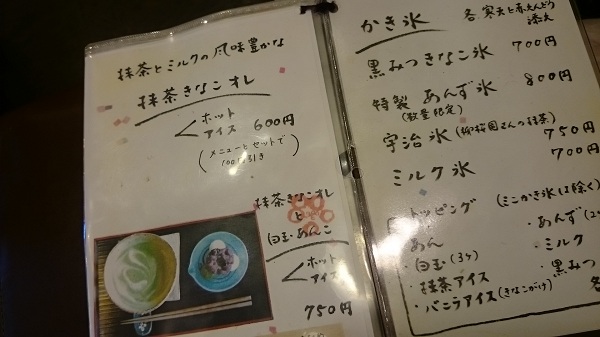 抹茶とミルクの風味豊かな
抹茶きなこオレ
ホット
アイス 600円
(メニューとセットで
100円引き)
抹茶きなこオレ
と
白玉・あんこ
ホット
アイス
750円
かき氷
各、寒天と赤えんどう
添え
黒みつきなこ氷 700円
特製 あんず氷 800円
(数量限定)
宇治氷(柳桜園さんの抹茶) 750円
ミルク氷 700円
トッピング (ミニかき氷は除く)
・あん
・白玉(3ケ)
・抹茶アイス
・バニラアイス(きなこがけ)
・あんず(2
・ミルク
・黒みつ
各